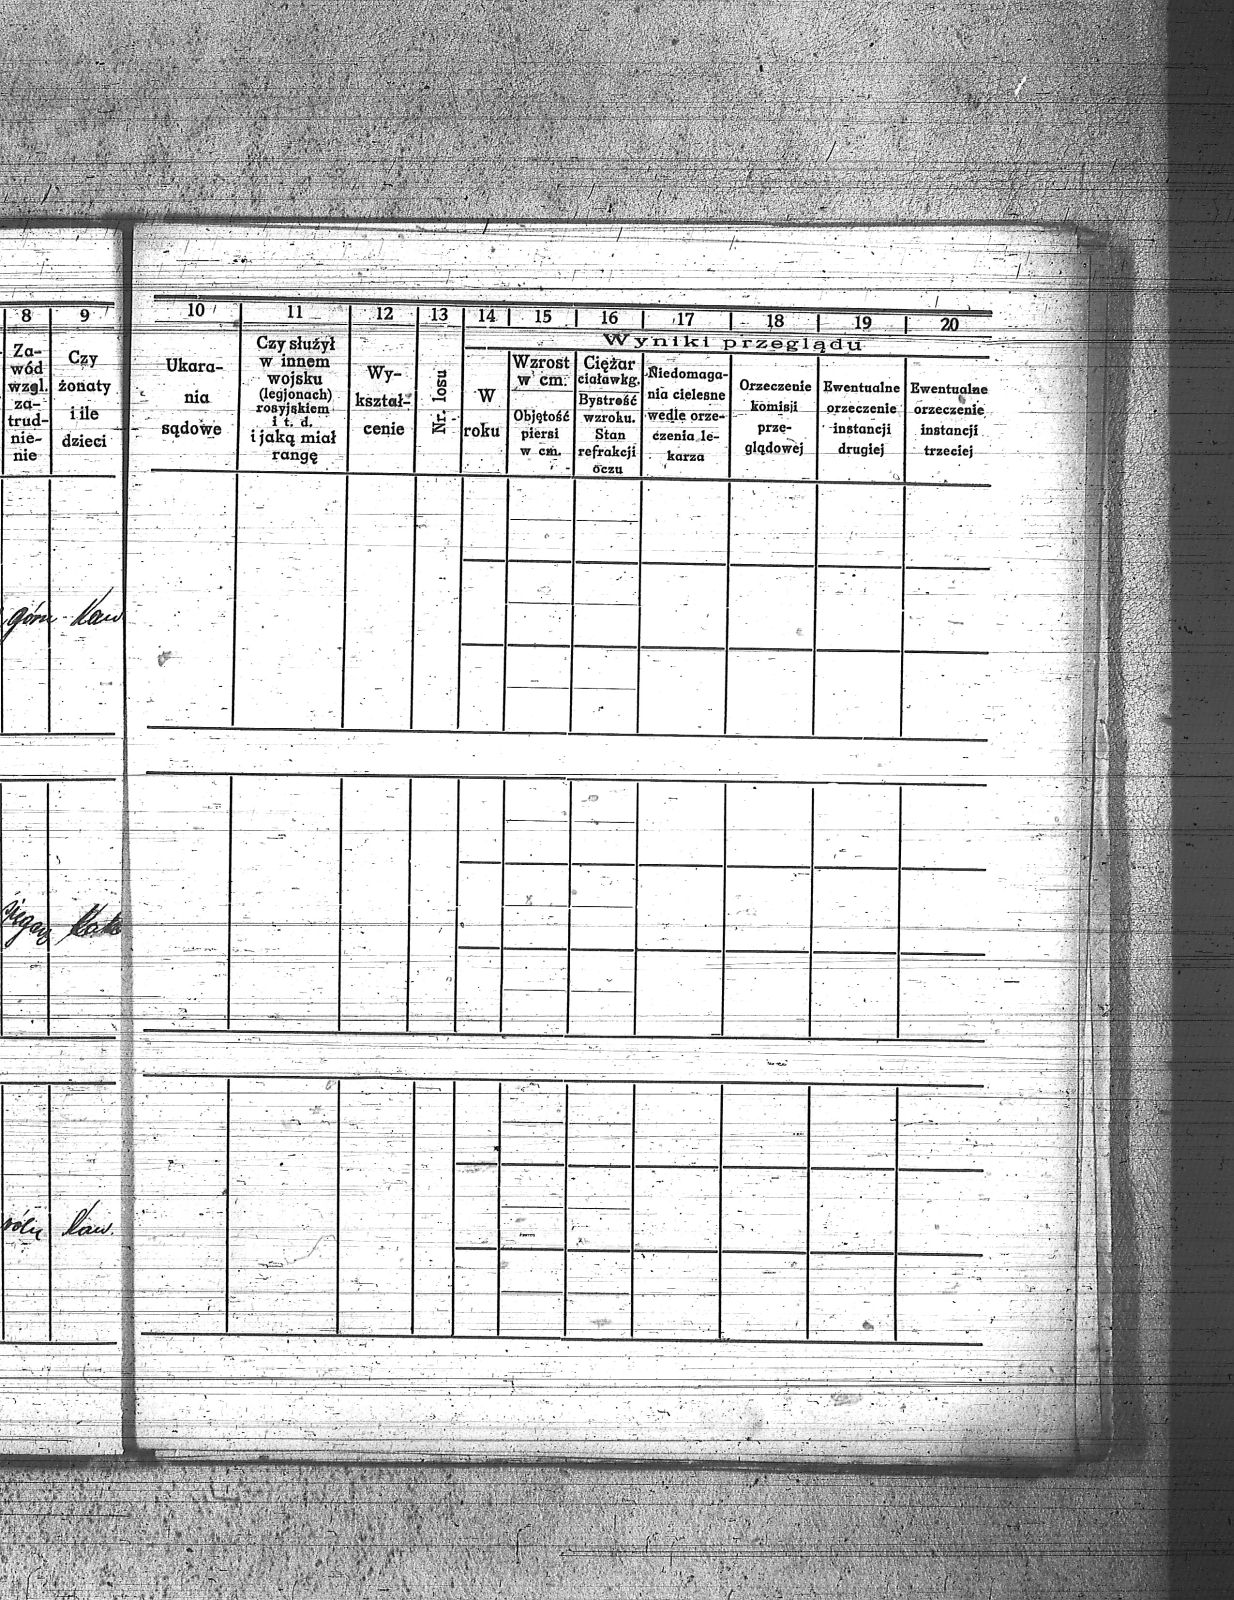 8 9 10 11 12 13 14 15 16 17 18 19 20
Wyniki przeglądu
Za-
wód
wzgl.
za-
trud-
nie-
nie
Czy
żonaty
i ile
dzieci
Ukara-
nia
sądowe
Czy służył
w innem
wojsku
(legjonach)
rosyjskiem
i t. d.
i jaką miał
rangę
Wy-
kształ-
cenie
Nr. losu
W
roku
Wzrost
w cm.
Objętość
piersi
w cm.
Ciężar
ciała w kg.
Bystrość
wzroku.
Stan
refrakcji
oczu
Niedomaga-
nia cielesne
wedle orze-
czenia le-
karza
Orzeczenie
komisji
prze-
glądowej
Ewentualne
orzeczenie
instancji
drugiej
Ewentualne
orzeczenie
instancji
trzeciej
Kaw
Kaw.